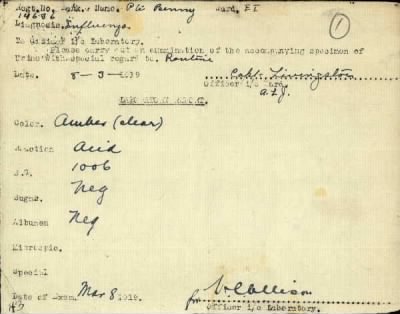 Regt.No. Rank. Name. Pte Benny Ward. EI
14686
Diagnosis. Influenza
①
To Officer i/c Laboratory.
Please carry out an examination of the accompanying specimen of
Urine with special regard to. Routine
Date. 8-3-1919
Officer i/c Ward.
LABORATORY REPORT.
Color. Amber (clear)
Reaction Acid
S.G. 1006
Sugar. Neg
Albumen Neg
Microscopic.
Special
Date of Exam. Mar 8 1919.
for
Officer i/c Laboratory.